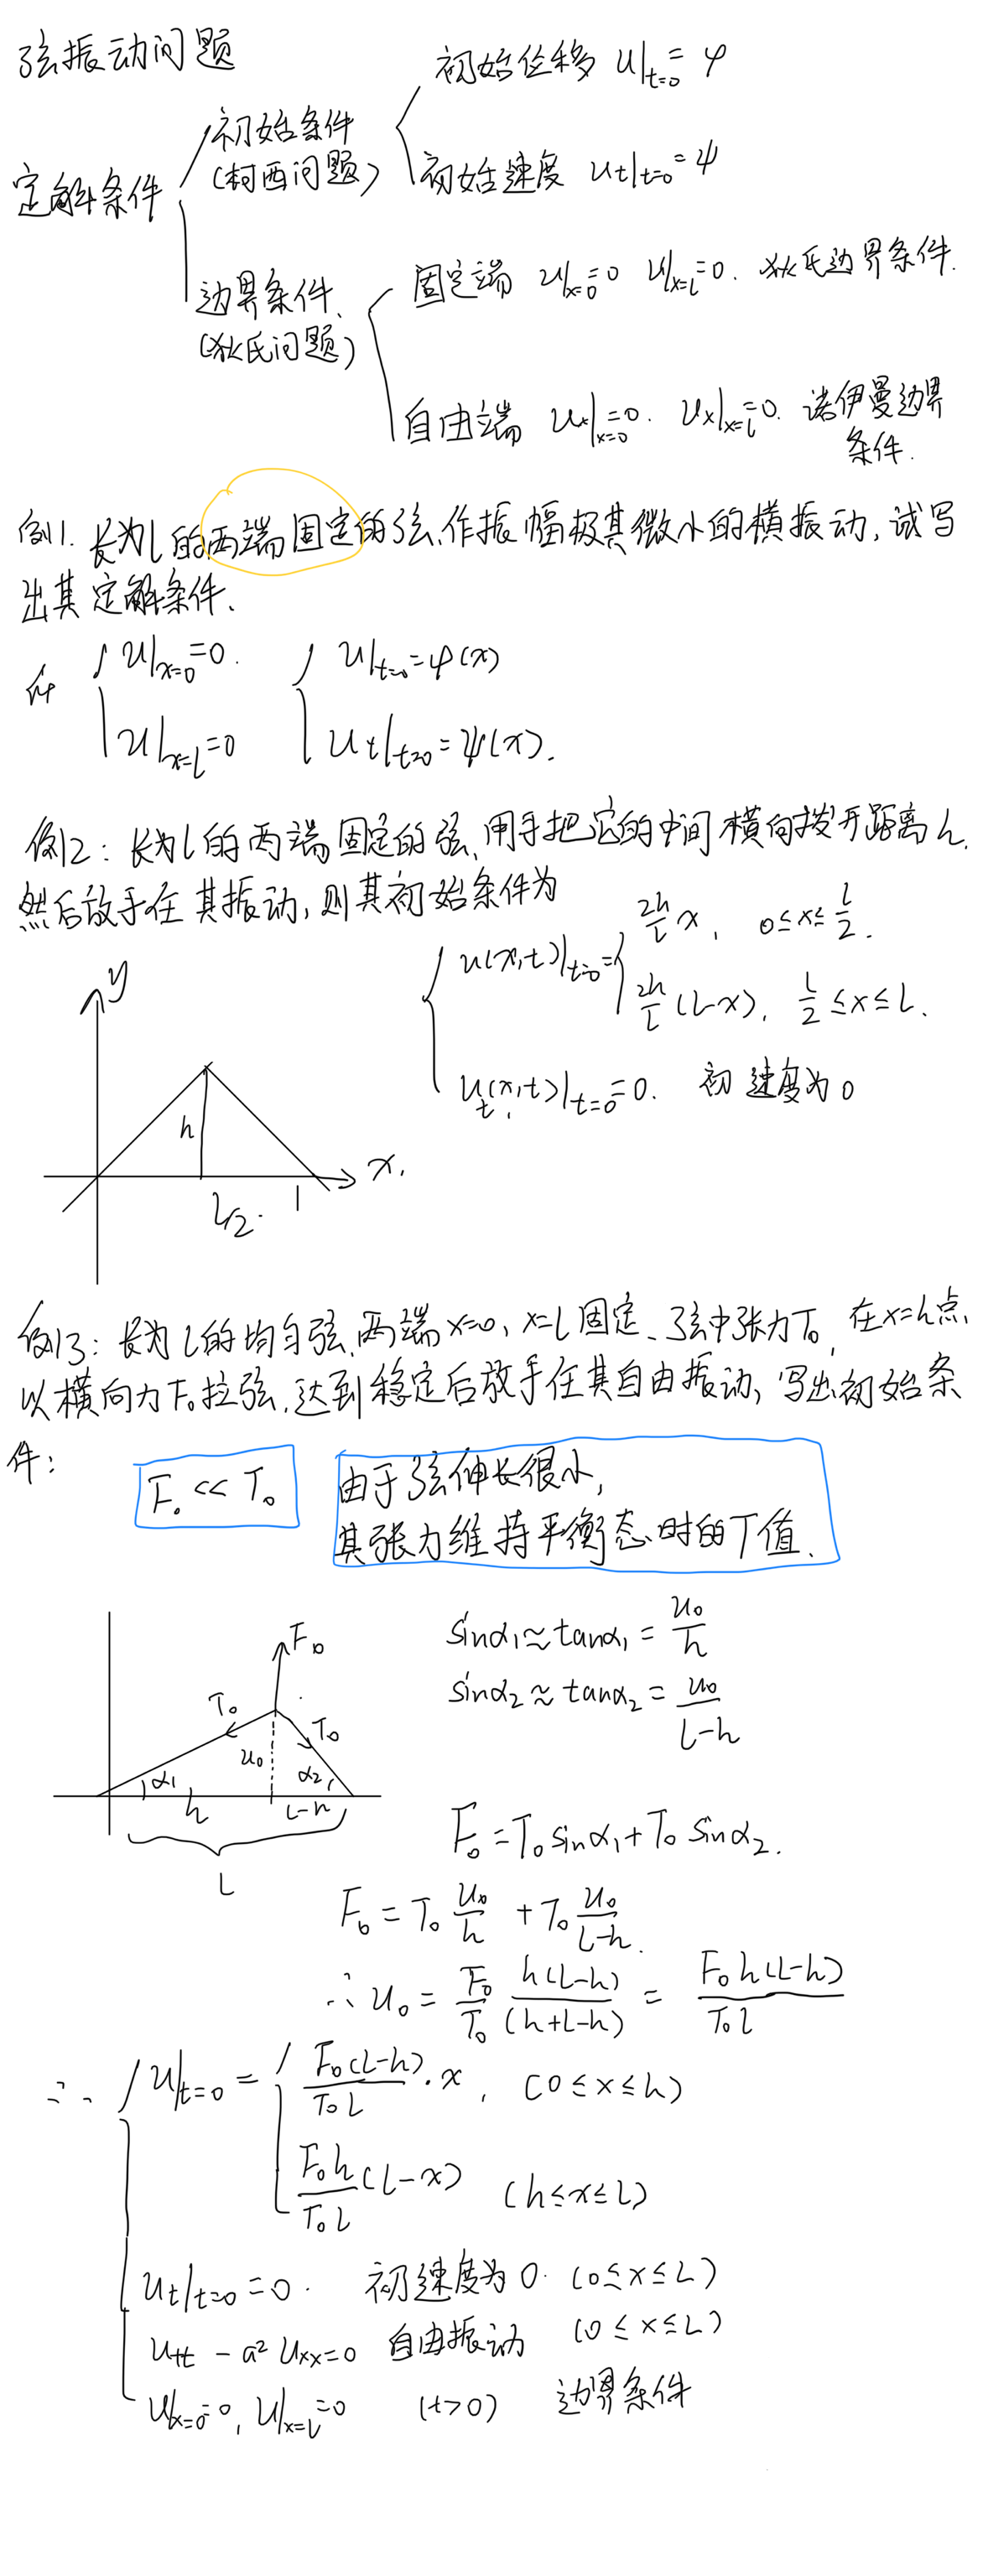 弦振动问题
定解条件
初始条件
(柯西问题)
初始位移 u|t=0 = φ
初始速度 ut|t=0 = ψ
边界条件.
(狄氏问题)
固定端 u|x=0 = 0 u|x=l = 0. 狄氏边界条件.
自由端 ux|x=0 = 0. ux|x=l = 0. 诺伊曼边界
条件.
例1. 长为l的两端固定的弦,作振幅极其微小的横振动,试写
出其定解条件.
u|x=0 = 0. u|t=0 = φ(x)
u|x=l = 0 ut|t=0 = ψ(x).
例2: 长为l的两端固定的弦,用手把它的中间横向拨开距离h.
然后放手任其振动,则其初始条件为
u(x,t)|t=0 = 2h/l x, 0≤x≤l/2.
2h/l (l-x), l/2≤x≤l.
ut(x,t)|t=0 = 0. 初速度为0
y
h
x.
l/2. l
例3: 长为l的均匀弦,两端x=0, x=l固定、弦中张力T0, 在x=h点,
以横向力F0拉弦,达到稳定后放手任其自由振动,写出初始条
件:
F0 << T0
由于弦伸长很小,
其张力维持平衡态时的T值.
sinα1≈tanα1 = u0/h
sinα2≈tanα2 = u0/(l-h)
F0
T0
T0
u0
α1 α2
h l-h
L
F0 = T0 sinα1 + T0 sinα2.
F0 = T0 u0/h + T0 u0/(l-h).
∴ u0 = F0/T0 h(l-h)/(h+l-h) = F0h(l-h)/T0l
∴ u|t=0 = F0(l-h)/T0l · x, (0≤x≤h)
F0h/T0l (l-x) (h≤x≤l)
ut|t=0 = 0. 初速度为0. (0≤x≤L)
utt - a² uxx = 0 自由振动 (0≤x≤L)
u|x=0 = 0, u|x=l = 0 (t>0) 边界条件